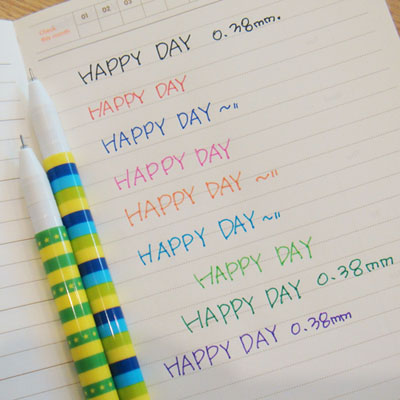 Check
this month
01 02 03
HAPPY DAY 0.38mm.
HAPPY DAY
HAPPY DAY ~"
HAPPY DAY
HAPPY DAY ~"
HAPPY DAY ~"
HAPPY DAY
HAPPY DAY 0.38mm
HAPPY DAY 0.38mm